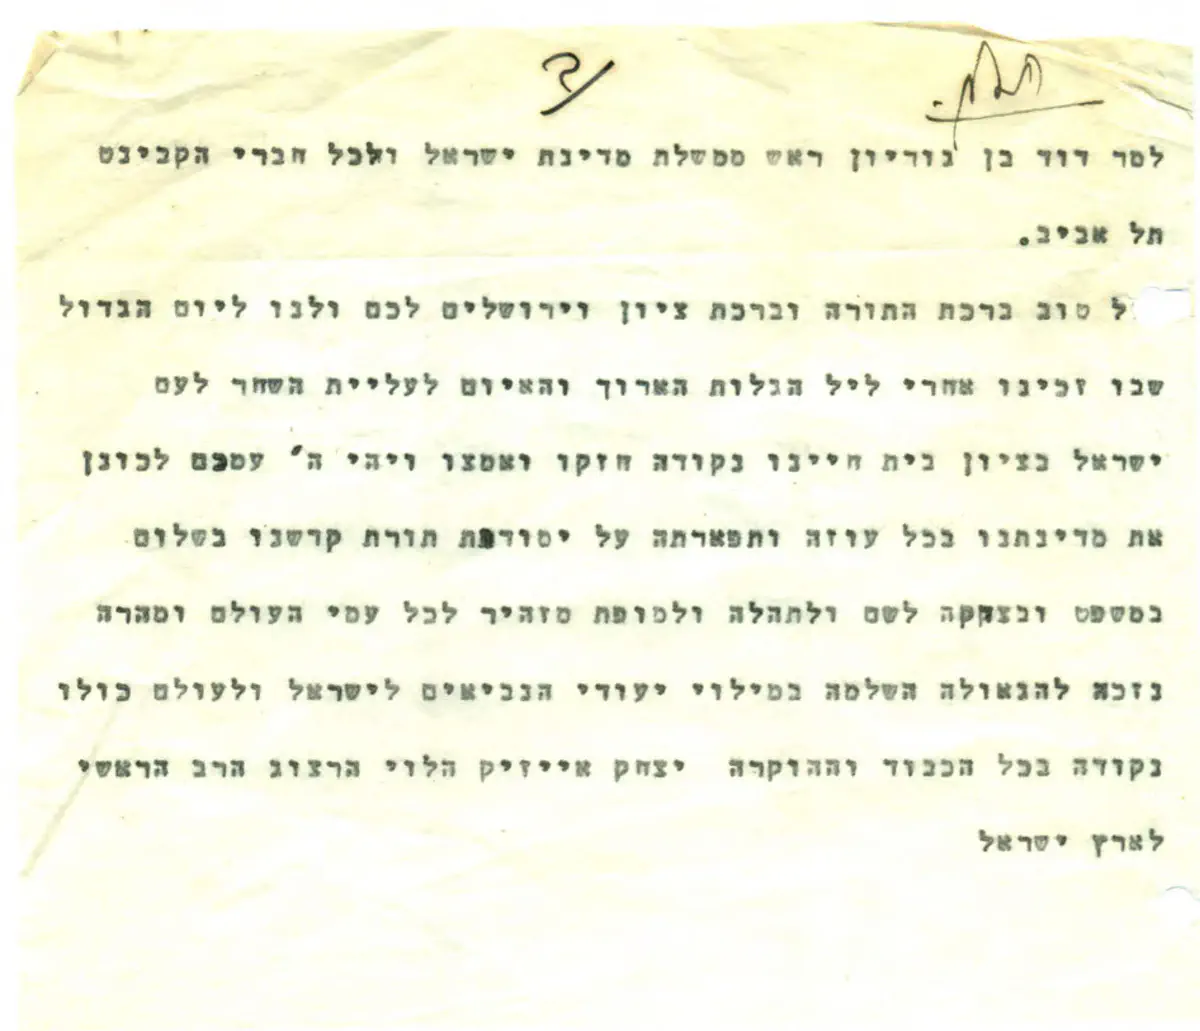 למר דוד בן גוריון ראש ממשלת מדינת ישראל ולכל חברי הקבינט
תל אביב.
טוב ברכת התורה וברכת ציון וירושלים לכם ולנו ליום הגדול
שבו זכינו אחרי ליל הגלות הארוך והאיום לעליית השחר לעם
ישראל בציון בית חיינו נקודה חזקו ואמצו ויהי ה' עמכם לכונן
את מדינתנו בכל עוזה ותפארתה על יסודת תורת קדשנו בשלום
במשפט ובצקקה לשם ולתהלה ולמופת מזהיר לכל עמי העולם ומהרה
נזכה להגאולה השלמה במילוי יעודי הנביאים לישראל ולעולם כולו
נקודה בכל הכבוד וההוקרה יצחק אייזיק הלוי הרצוג הרב הראשי
לארץ ישראל